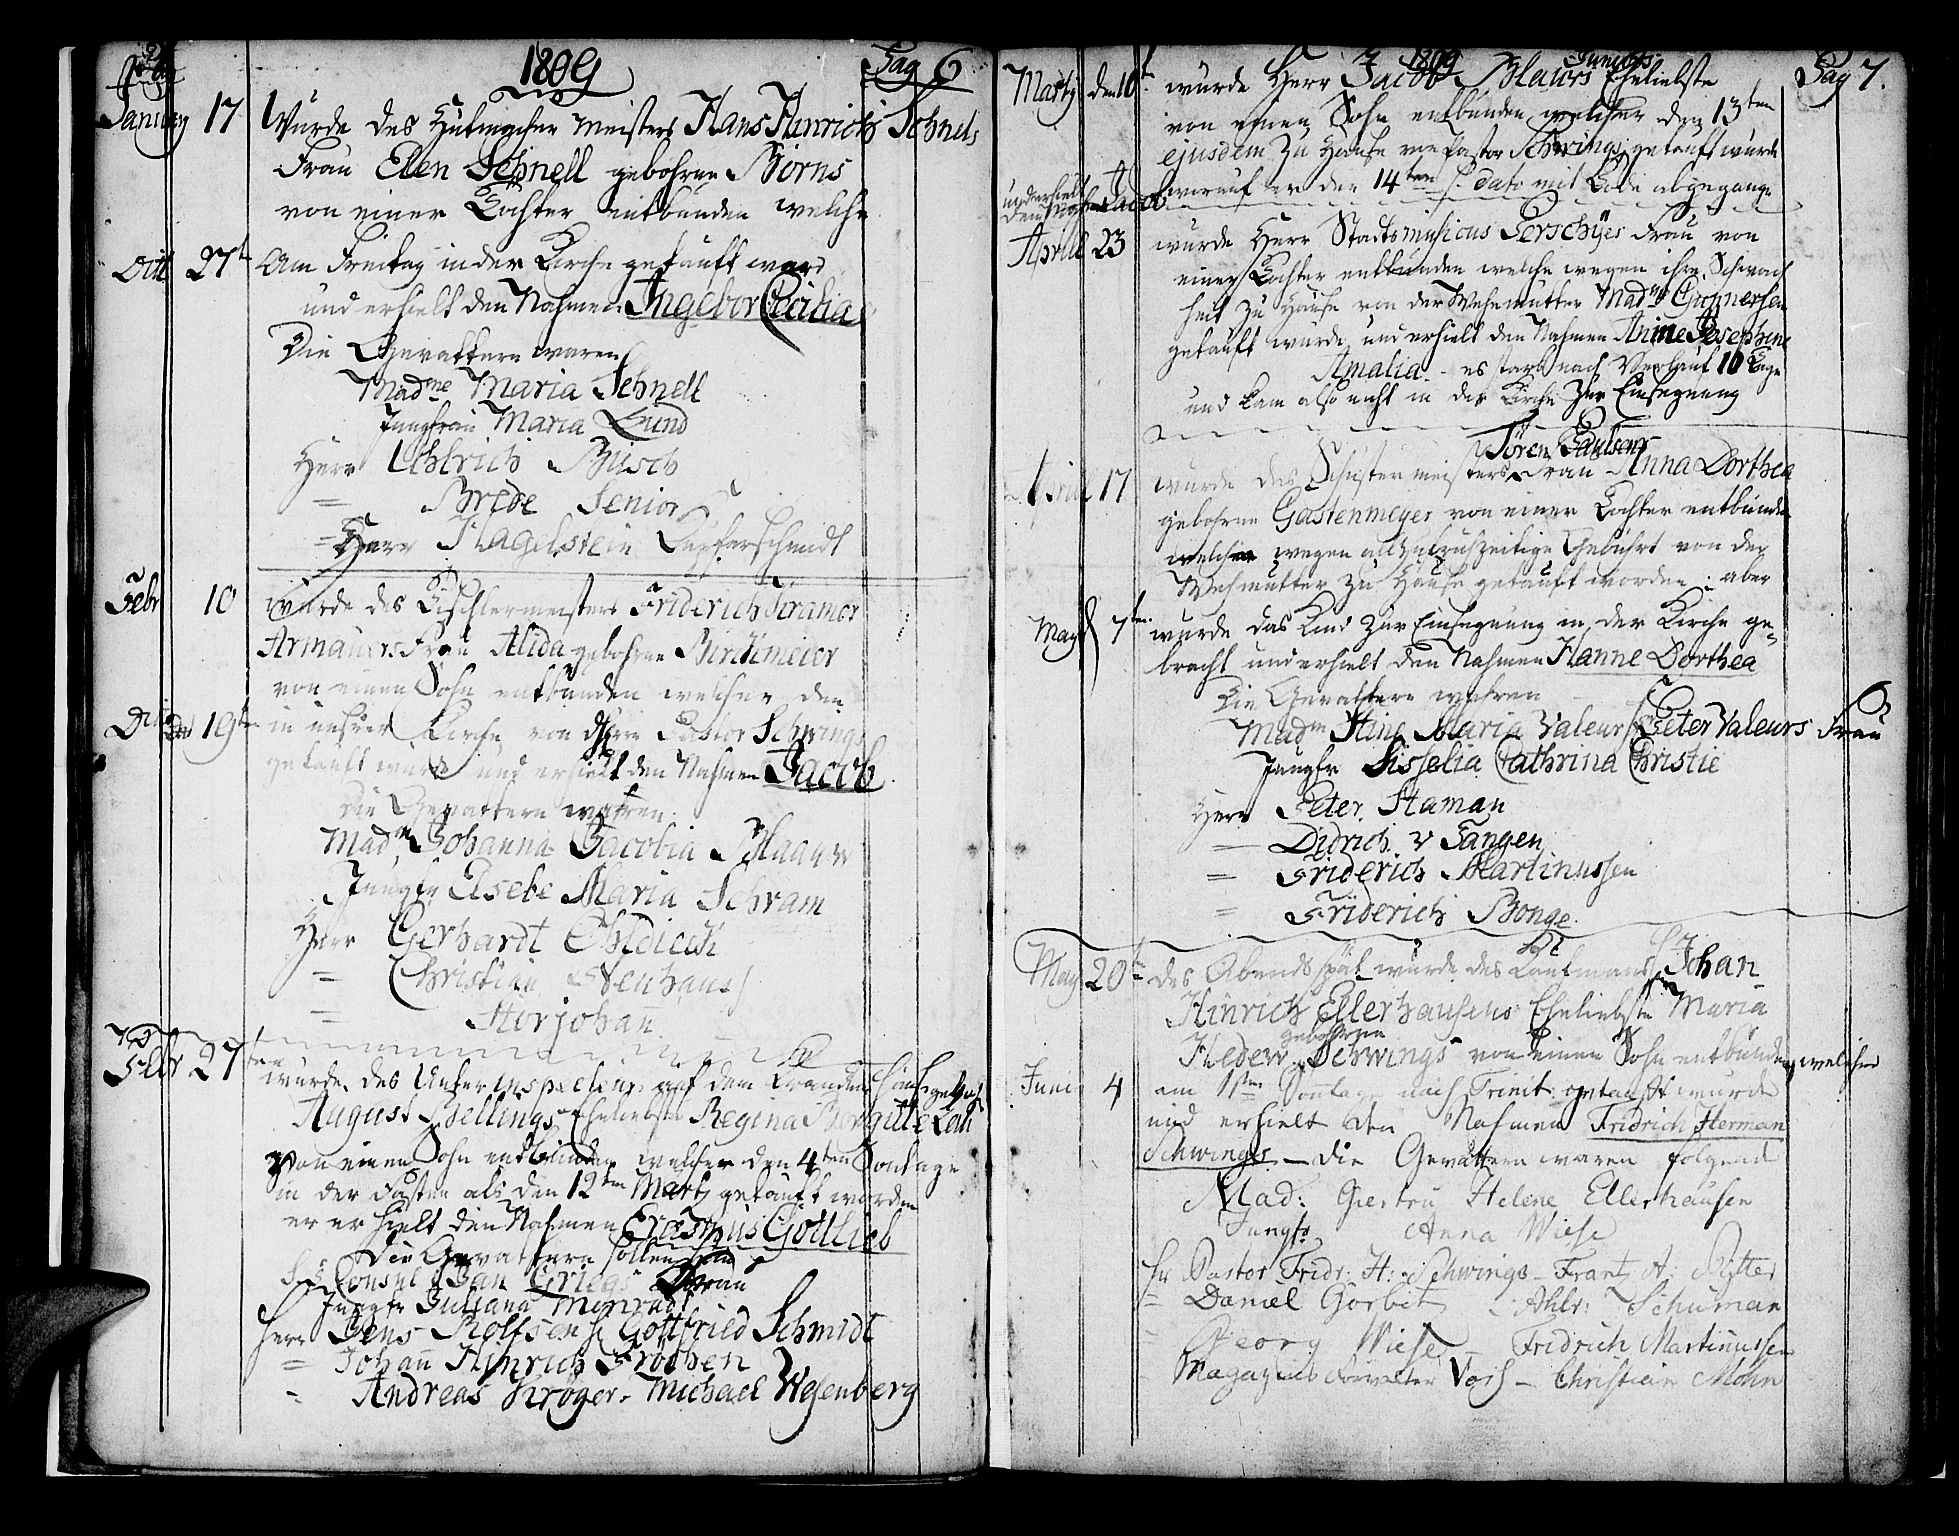 1809 Pag 6
January 17 Wurde des Hutmacher meisters Hans Hinrich Schnels
Frau Elen Schnell gebohrne Börns
von einer Tochter entbunden welche
Ditt 27t Am Freitag in der Kirche getauft ward
und erhielt den Nahmen Ingebor Cecilia
Die Gevattern waren
Madme Maria Schnell
Jungfrau Maria Lund
Herr Uhlrich Busch
= Brede Senior
= Herr Hagelstein Kupferschmidt
Febr 10 wurde des Tischlermeisters Friderich Kramer
Armauers Frau Alida gebohrne Birckmeier
von einen Sohn entbunden welcher den
Dito 19ten in unsrer Kirche von Herrn Pastor Schwings
getauft wurde und erhielt den Nahmen Jacob
Die Gevattern wahren
Madm Johanna Jacobia Blaauw
Jungfr Elsebe Maria Schram
Herr Gerhardt Ohldieck
= Christian Neuhaus
= Storjohan
Febr 27ten
wurde des Unter inspecteur auf dem
August Bellings Eheliebste Regina
von einen Sohn entbunden welcher den 4ten Sontage
in der Fasten als den 12ten Martz getauft worden
er erhielt den Nahmen Erasmus Gottlieb
die Gevattern sollen sein
Consul Jan Griegs Frau
Jungfr Juliana Monradt
Herr Jens Rolfsen H Gottfried Schmidt
= Johan Hinrich Fröchen
= Andreas Kröger - Michael Wesenberg
1809 Pag 7.
Juniors
Martz den 10t wurde Herr Jacob Blaurs Eheliebste
von einen Sohn entbunden welcher den 13ten
ejusdem zu Hause von Pastor Schwings getauft wurde
und erhielt
den Nahmen Jacob
worauf er den 14ten dato mit Tode abgegangen
Aprill 23 wurde Herr Stadtsmusicus Perschÿes Frau von
einer Tochter entbunden welche wegen ihre Schwach
heit zu Hause von der Wehemutter Madme
getauft wurde und erhielt den Nahmen Anne Josephine
Amalia - es starb nach Verlauf 10 Tage
und kam also nicht in der Kirche zur Einsegnung
Sören Paulsens
Aprill 17 wurde des Schustermeisters Frau Anna Dorthea
gebohrne Gastenmeyer von einer Tochter entbunden
welche wegen allzufrühzeitige Gebuhrt von der
Wehmutter zu Hause getauft worden: aber
May 7ten wurde das Kind zur Einsegnung in der Kirche ge-
bracht und erhielt den Nahmen Hanne Dorthea
Die Gevattern wahren
Madm Stine Maria Valeur Peter Valeurs Frau
Jungfr Sisselia Cathrina Christie
Herr Peter Staman
= Didrich v Tangen
= Friderich Martinussen
= Friderich Bonge
May 20t des Abends spät wurde des Kaufmans Johan
Hinrich Ellerhausens Eheliebste Maria
gebohrne
Hedew Schwings von einen Sohn entbunden welcher
Juni 4 am 1sten Sontage nach Trinit: getauft wurde
und erhielt den Nahmen Fridrich Herman
Schwings - Die Gevattern waren folgende
Mad: Giertru Helene Ellerhausen
Jungfr Anna Wiese
Hr Pastor Fridr: H: Schwings - Frantz A: Ritter
= Daniel Gorbit - Ahlr: Schuman
- Georg Wiese - Fridrich Martinussen
- Magazins Forvalter Voss - Christian Mohn